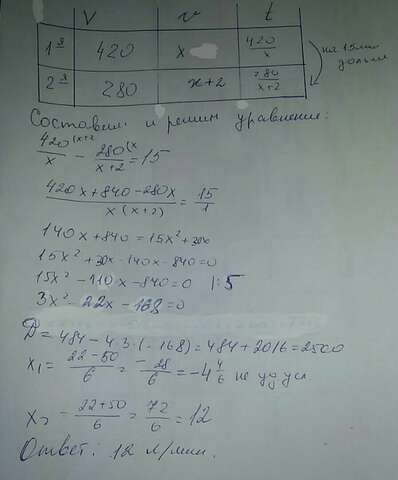 V v t
1я 420 x 420/x
2я 280 x+2 280/x+2
на 15мин дольше
Составим и решим уравнение:
420(x+2/x - 280(x/x+2 = 15
420x+840-280x/x(x+2) = 15/1
140x+840=15x²+30x
15x²+30x-140x-840=0
15x²-110x-840=0 |:5
3x²-22x-168=0
D=484-4·3·(-168)=484+2016=2500
x₁= 22-50/6 = -28/6 = -4 4/6 не уд усл
x₂ = 22+50/6 = 72/6 = 12
Ответ: 12 л/мин.